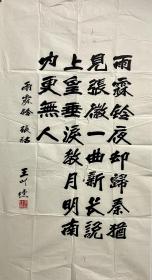 雨霖鈴夜却歸秦猶
見張徽一曲新长説
上皇垂淚教月明南
内更無人
雨霖鈴 張祜